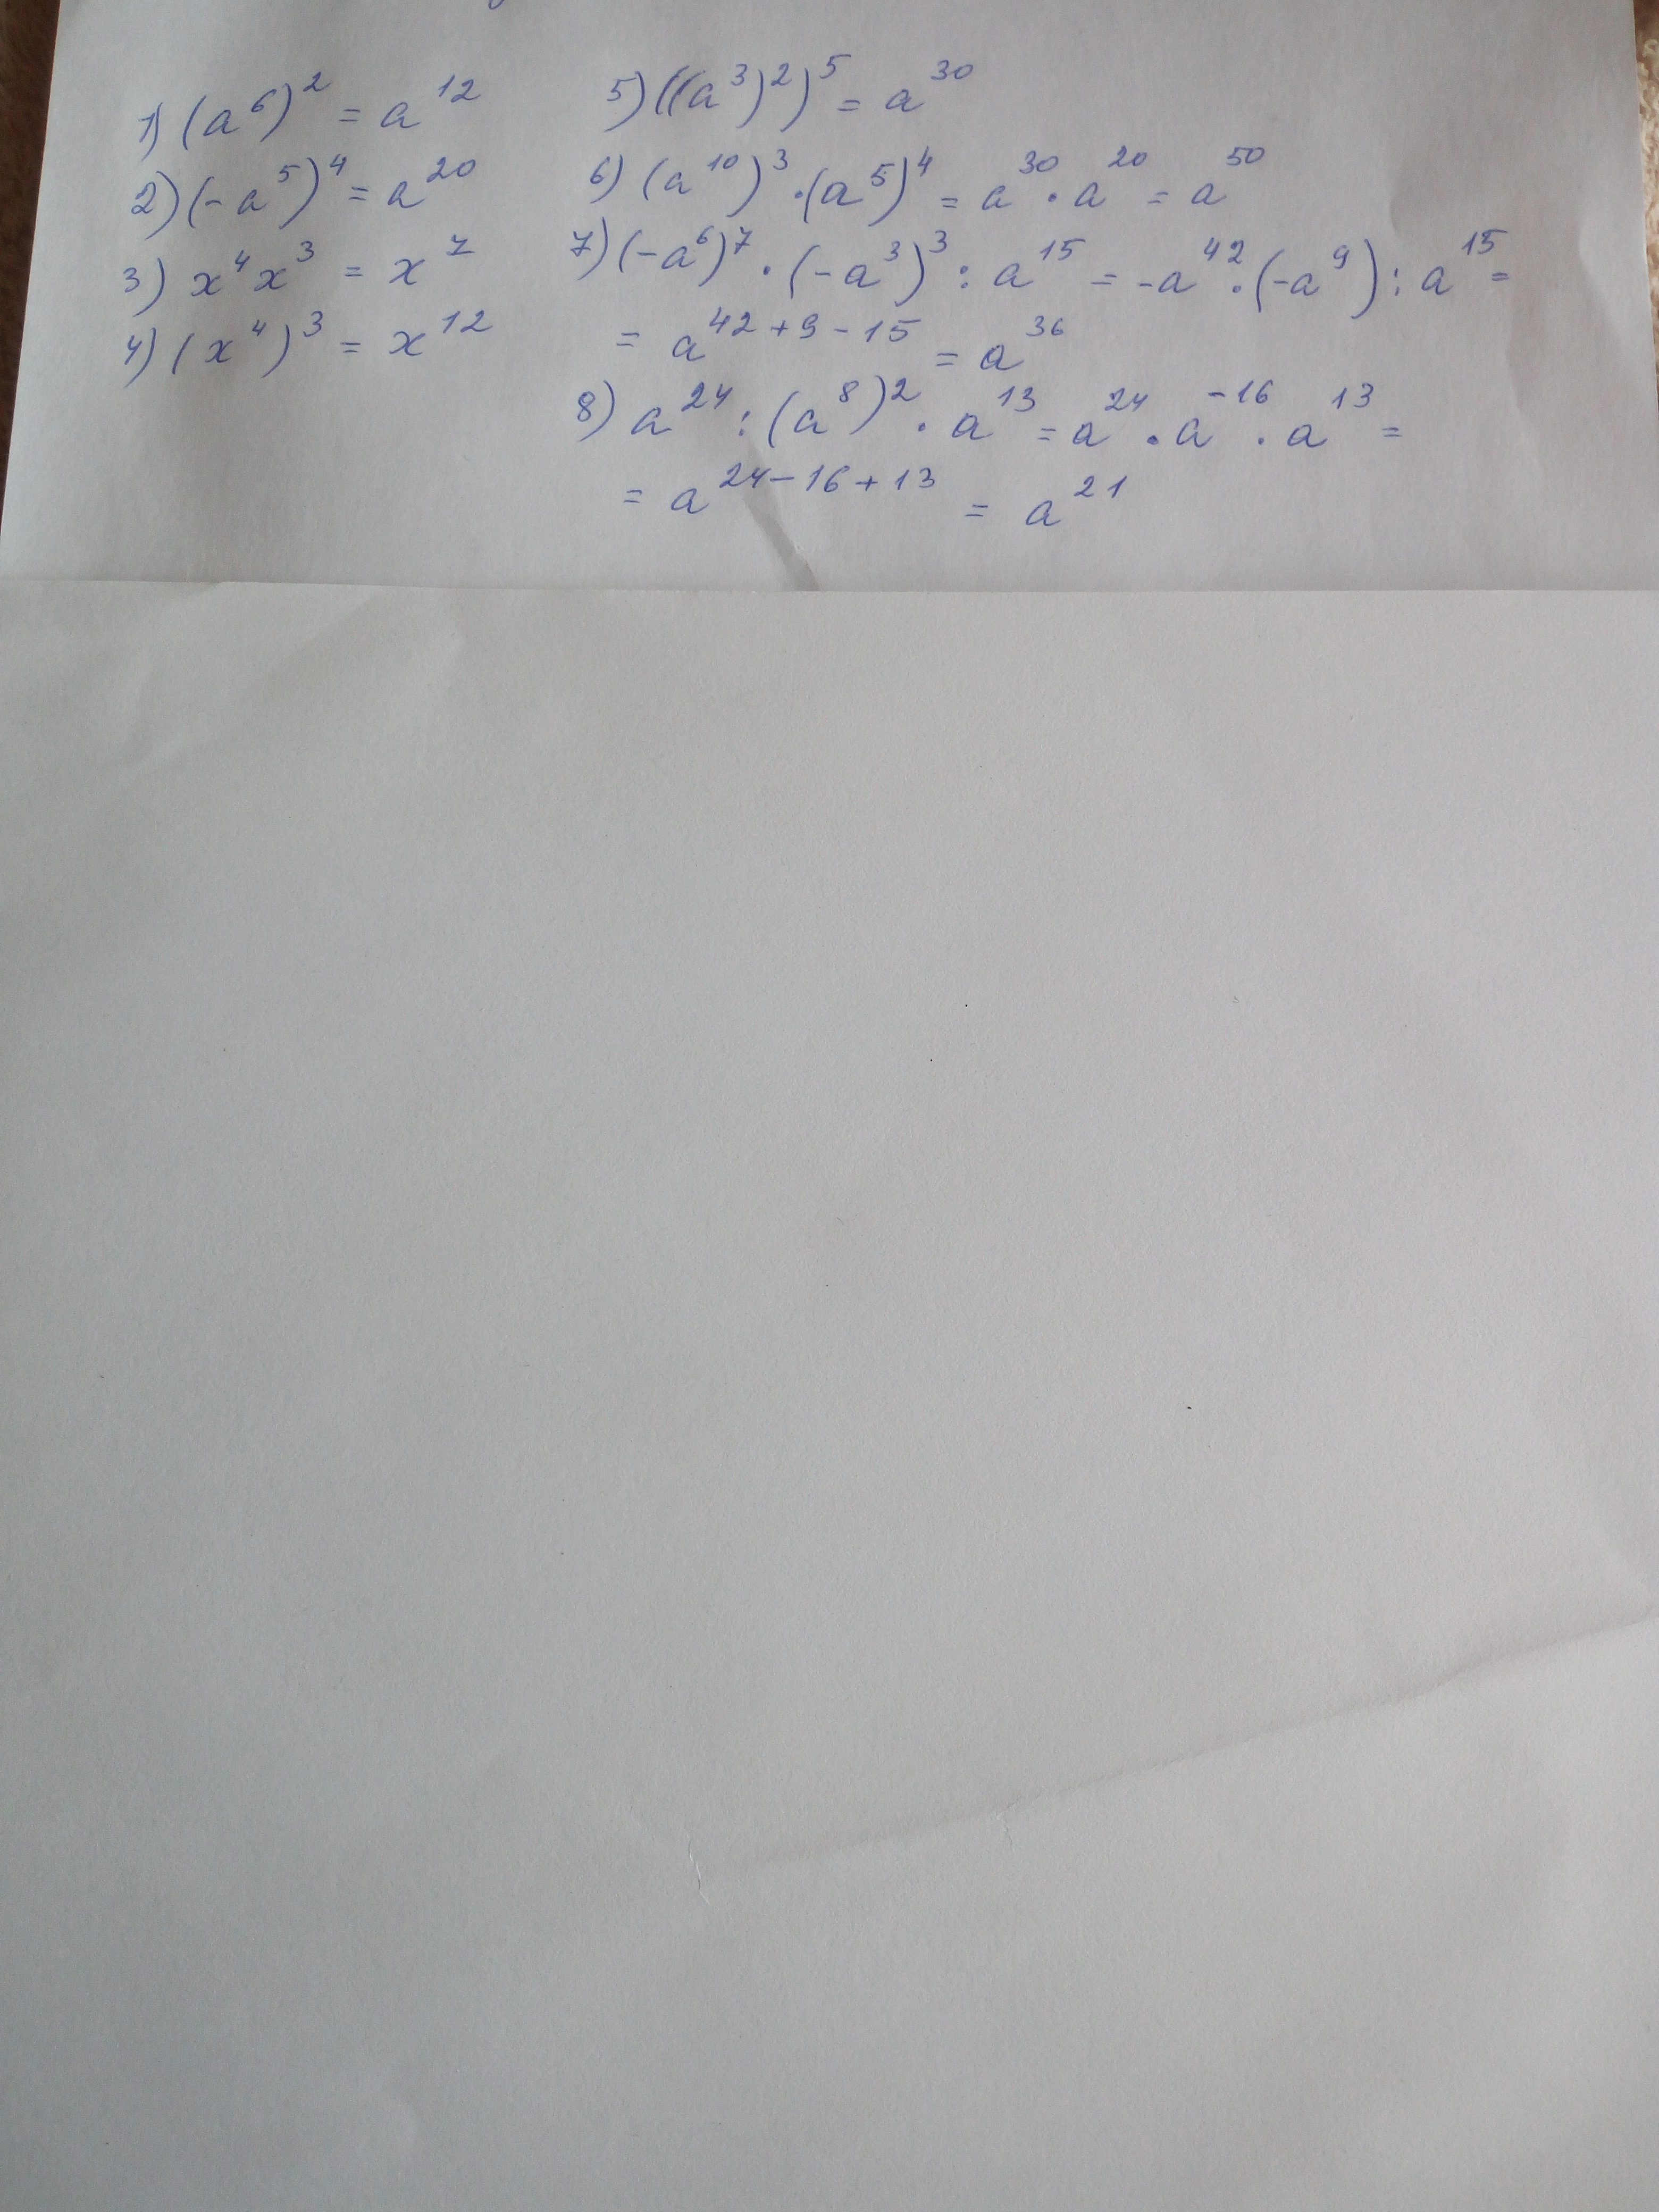 1) (a⁶)² = a¹²
2) (-a⁵)⁴ = a²⁰
3) x⁴x³ = x⁷
4) (x⁴)³ = x¹²
5) ((a³)²)⁵ = a³⁰
6) (a¹⁰)³ · (a⁵)⁴ = a³⁰ · a²⁰ = a⁵⁰
7) (-a⁶)⁷ · (-a³)³ : a¹⁵ = -a⁴² · (-a⁹) : a¹⁵ =
= a⁴²⁺⁹⁻¹⁵ = a³⁶
8) a²⁴ : (a⁸)² · a¹³ = a²⁴ · a⁻¹⁶ · a¹³ =
= a²⁴⁻¹⁶⁺¹³ = a²¹